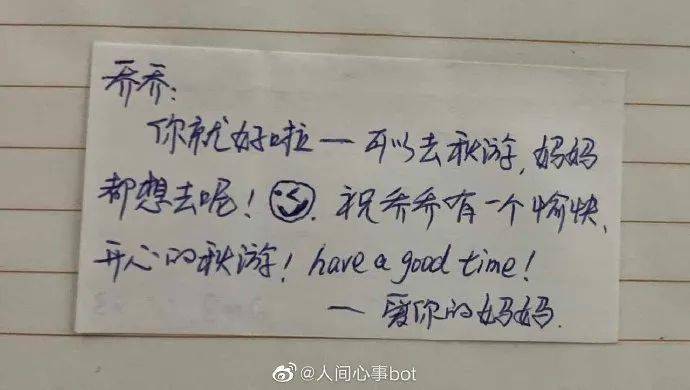 乔乔:
你就好啦一可以去秋游,妈妈
都想去呢! 祝乔乔有一个愉快、
开心的秋游! have a good time!
一 爱你的妈妈.
@人间心事bot